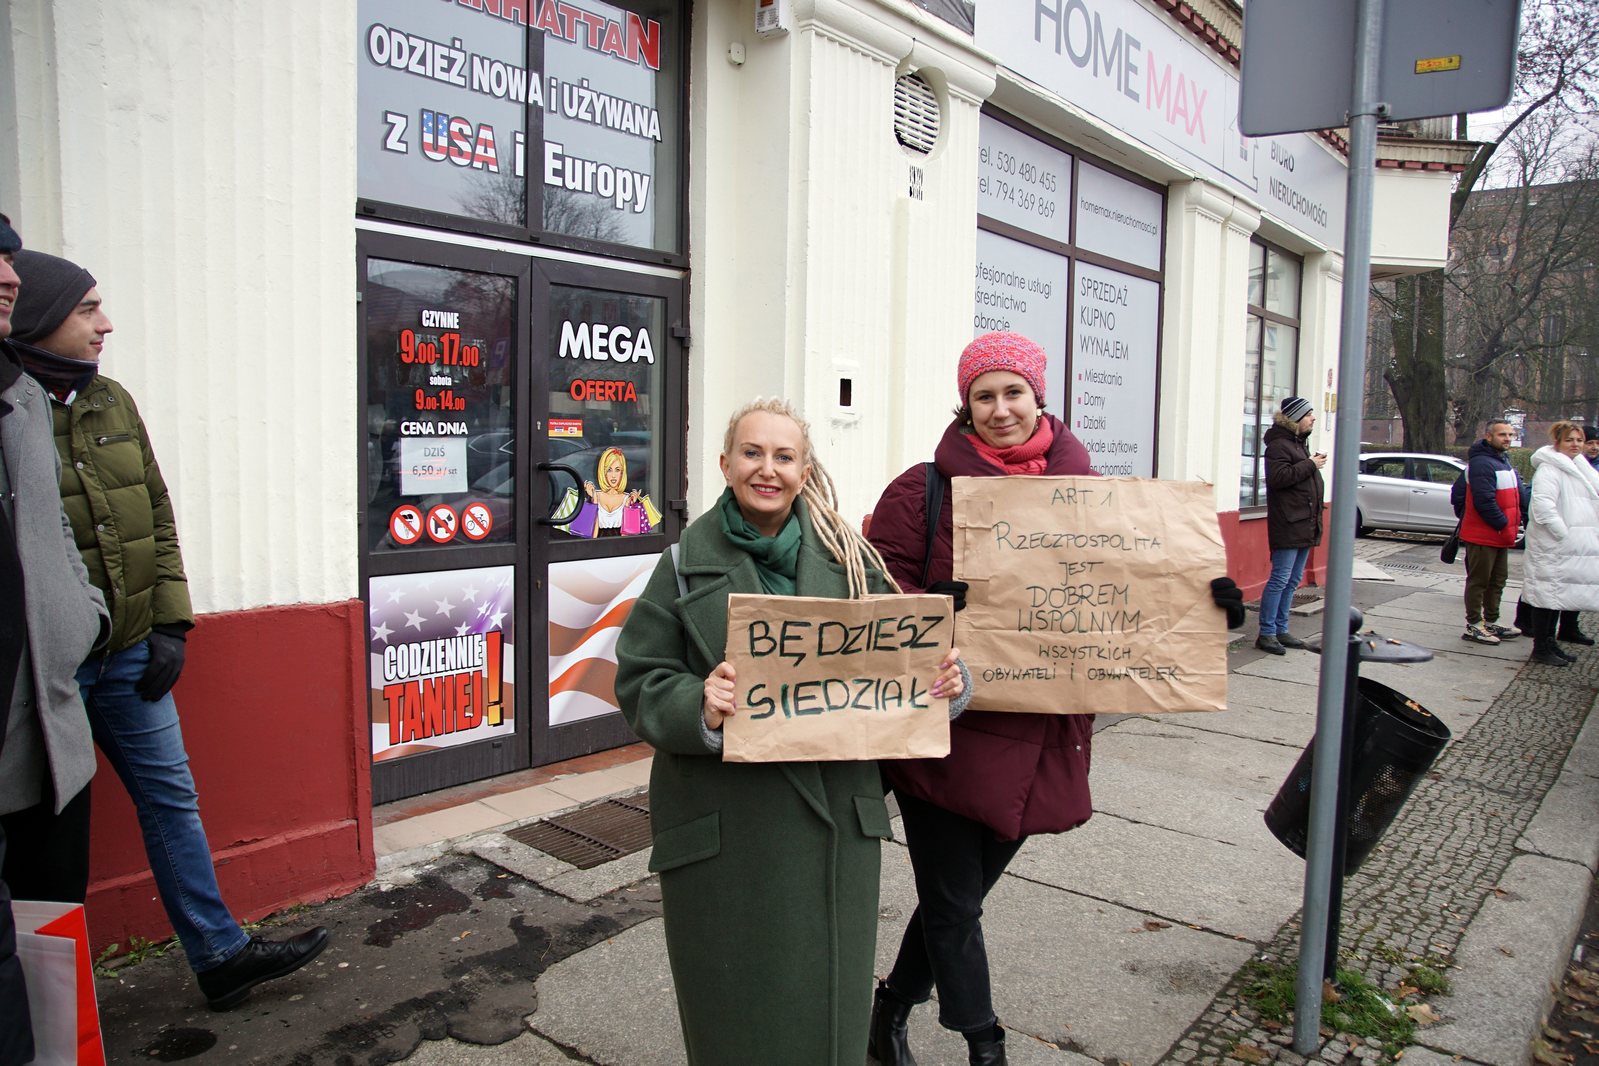 MANHATTAN
ODZIEŻ NOWA i UŻYWANA
z USA i Europy
CZYNNE
9.00-17.00
sobota
9.00-14.00
CENA DNIA
DZIŚ
6,50 zł / szt
MEGA
OFERTA
CODZIENNIE
TANIEJ!
HOMEMAX
BIURO
NIERUCHOMOŚCI
tel. 530 480 455
tel. 794 369 869
homemax.nieruchomosci.pl
ofesjonalne usługi
ośrednictwa
obrocie
SPRZEDAŻ
KUPNO
WYNAJEM
Mieszkania
Domy
Działki
Lokale użytkowe
eruchomości
BĘDZIESZ
SIEDZIAŁ
ART 1
RZECZPOSPOLITA
JEST
DOBREM
WSPÓLNYM
WSZYSTKICH
OBYWATELI I OBYWATELEK